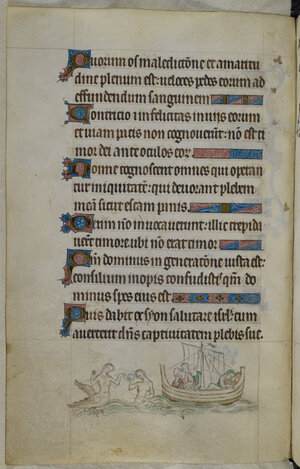 Quorum os maledictōne et amaritu
dine plenum est: veloces pedes eorum ad
effundendum sanguinem
Contricio et infelicitas in viis eorum
et viam pacis non cognoverūt: nō est ti
mor dei ante oculos eoꝝ
Nonne cognoscent omnes qui operan
tur iniquitatē: qui devorant plebem
meā sicut escam panis.
Deum nō invocaverunt: illic trepida
verūt timore ubi nō erat timor.
Qm̄ dominus in generatōne iusta est:
consilium inopis confudistis: qm̄ do
minus spes eius est
Quis dabit ex syon salutare isrl: cum
averterit dn̄s captivitatem plebis sue.